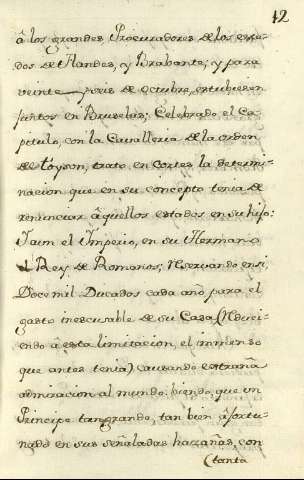 12
â los grandes Procuradores de los esta-
dos de Flandes, y Brabante; y para
veinte y seis de octubre, estubiesen
juntos en Bruselas; Celebrado el Ca-
pitulo, con la Cavalleria de la orden
del toyson, trato en cortes la determi-
nacion que en su concepto tenia de
renunciar â quellos estados en su hijo:
I aun el Imperio, en su Hermano
el Rey de Romanos; Reservando en si,
Doce mil Ducados cada año para el
gasto inescusable de su Casa (Reduci-
endo â esta limitacion, el inmenso
que antes tenia) causando estraña
admiracion al mundo, biendo, que un
Principe tan grande, tan bien afortu-
nado en sus señaladas hazañas, con
tanta